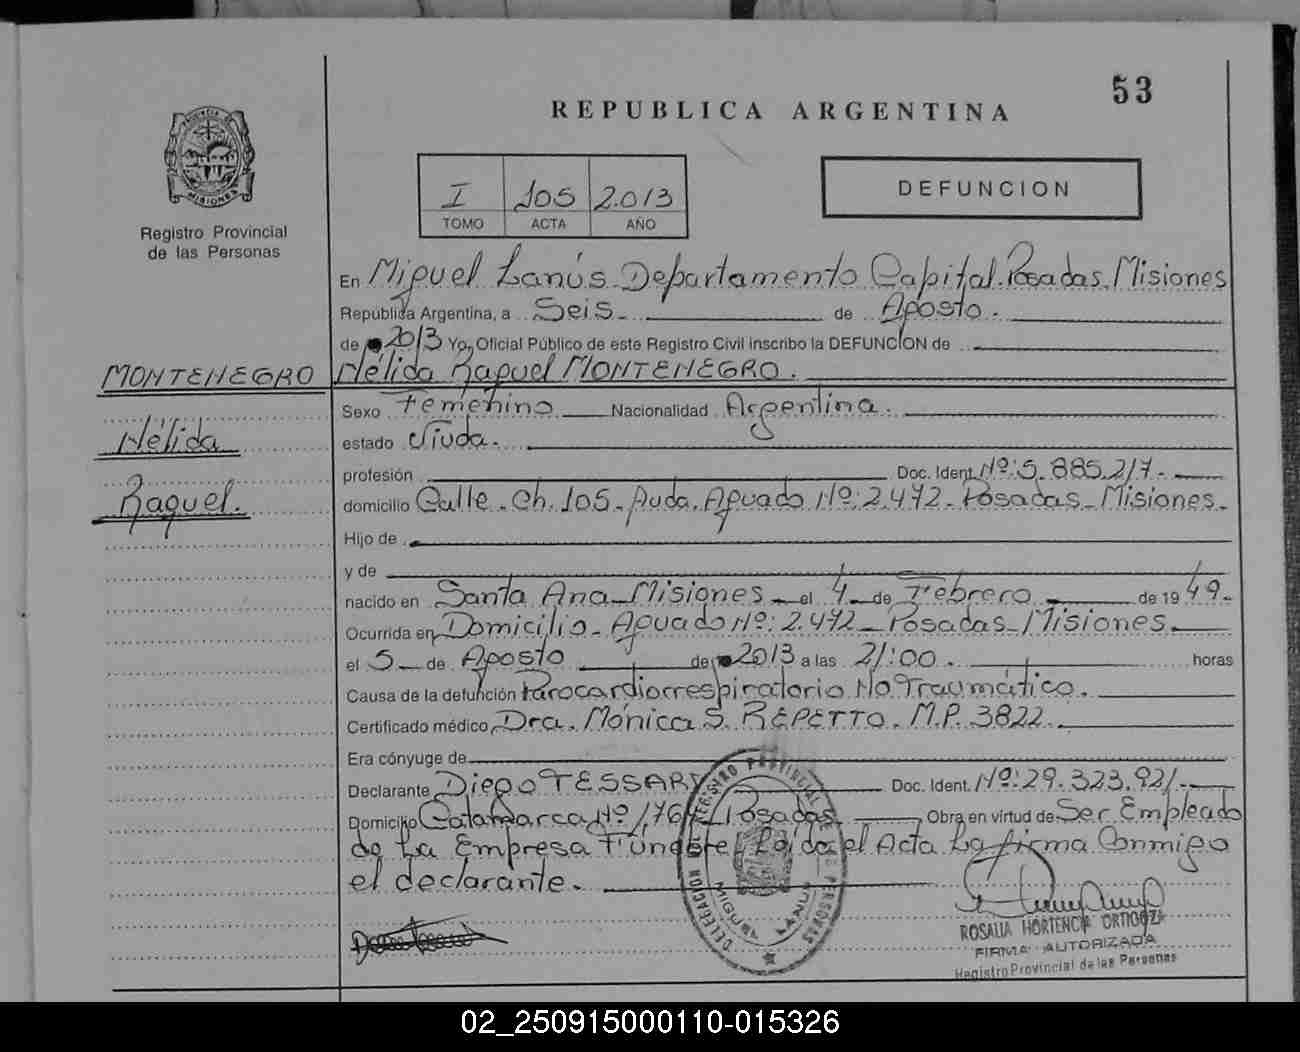 53
REPUBLICA ARGENTINA
PROVINCIA DE MISIONES
Registro Provincial
de las Personas
I 105 2.013
TOMO ACTA AÑO
DEFUNCION
En Miguel Lanús. Departamento Capital. Posadas. Misiones
República Argentina, a Seis. de Agosto.
de 2013 Yo, Oficial Público de este Registro Civil inscribo la DEFUNCION de
MONTENEGRO
Nélida
Raquel.
Nélida Raquel MONTENEGRO.
Sexo Femenino Nacionalidad Argentina.
estado Viuda.
profesión Doc. Ident. Nº: 5.885.217.
domicilio Calle. Ch. 105. Avda. Aguado Nº: 2.472 - Posadas - Misiones.
Hijo de
y de
nacido en Santa Ana - Misiones - el 4 de Febrero de 1949.
Ocurrida en Domicilio - Aguado Nº: 2.472 - Posadas - Misiones.
el 5 de Agosto de 2013 a las 21:00. horas
Causa de la defunción Parocardiorrespiratorio No Traumático.
Certificado médico Dra. Mónica S. REPETTO. M.P. 3822.
Era cónyuge de
Declarante Diego TESSARI Doc. Ident. Nº: 29.323.921.
Domicilio Catamarca Nº Posadas Obra en virtud de Ser Empleado
de La Empresa Fúnebre. Leída el Acta La firma Conmigo
el declarante.
REGISTRO PROVINCIAL DE LAS PERSONAS
DELEGACION
MIGUEL LANUS
ROSALIA HORTENCIA ORTIGOZA
FIRMA AUTORIZADA
Registro Provincial de las Personas
02_250915000110-015326